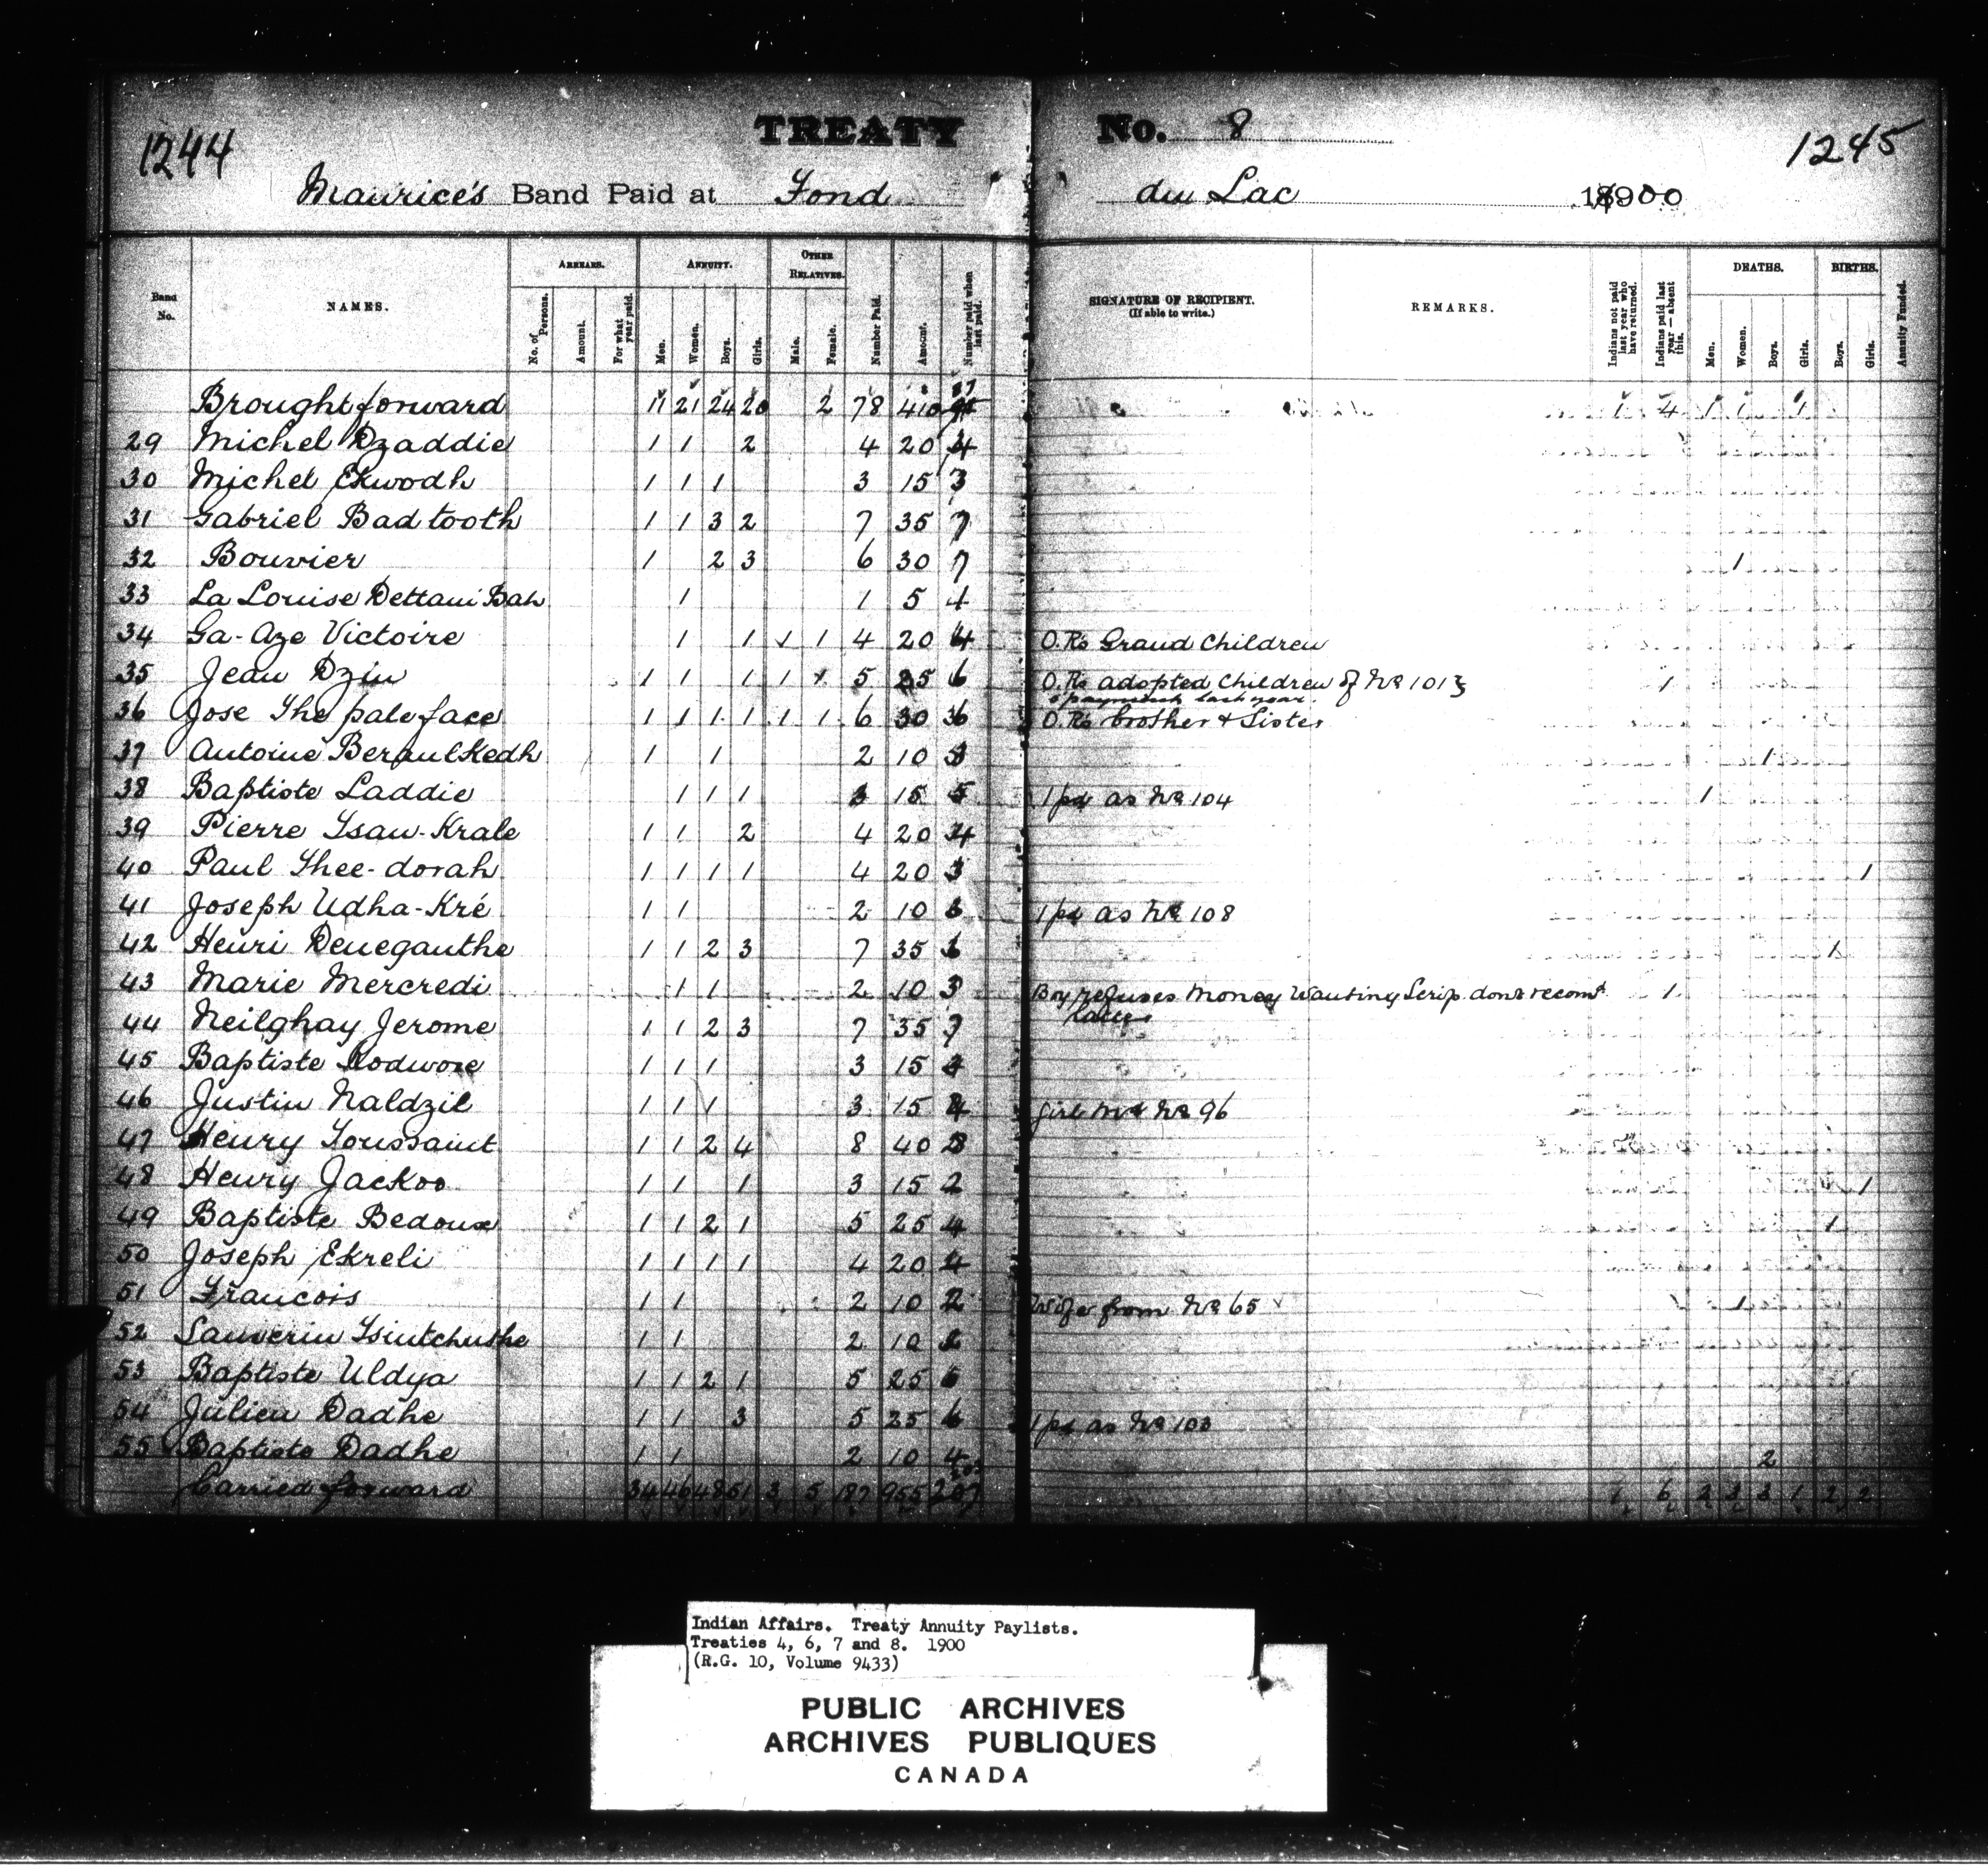 1244 TREATY No. 8 1245
Maurice's Band Paid at Fond du Lac 18900
Band No. NAMES. ARREARS. ANNUITY. OTHER RELATIVES. Number Paid. Amount. Number paid when last paid. SIGNATURE OF RECIPIENT. (If able to write.) REMARKS. Indians not paid last year who have returned. Indians paid last year — absent this. DEATHS. BIRTHS. Annuity Funded.
No. of Persons. Amount. For what year paid. Men. Women. Boys. Girls. Male. Female. Men. Women. Boys. Girls. Boys. Girls.
Brought forward 11 21 24 20 2 78 410 1 4 1 1 1
29 Michel Dzaddie 1 1 2 4 20 4
30 Michel Ekwodh 1 1 1 3 15 3
31 Gabriel Bad tooth 1 1 3 2 7 35 7
32 Bouvier 1 2 3 6 30 7 1
33 La Louise Dettani Bah 1 1 5 1
34 Ga-Aze Victoire 1 1 1 1 4 20 4 O.Rs Grand Children
35 Jean Dziu 1 1 1 1 1 5 25 6 O.Rs adopted Children of No 101 1
payment last year.
36 Jose The pale face 1 1 1 1 1 1 6 30 6 O.Rs brother & Sister
37 Antoine Beraulkedh 1 1 2 10 3 1
38 Baptiste Laddie 1 1 1 3 15 5 1 pd as No 104 1
39 Pierre Tsau-Krale 1 1 2 4 20 4
40 Paul Thee-dorah 1 1 1 1 4 20 3 1
41 Joseph Udha-Kré 1 1 2 10 3 1 pd as No 108
42 Henri Deneganthe 1 1 2 3 7 35 6 1
43 Marie Mercredi 1 1 2 10 3 Boy refuses money Wanting Scrip dont recomd 1
44 Neilghay Jerome 1 1 2 3 7 35 7
45 Baptiste Rodwoze 1 1 1 3 15 4
46 Justin Naldzil 1 1 1 3 15 4 girl md No 96
47 Henry Toussaint 1 1 2 4 8 40 8
48 Henry Jackoo 1 1 1 3 15 2 1
49 Baptiste Bedoux 1 1 2 1 5 25 4 1
50 Joseph Ekreli 1 1 1 1 4 20 4
51 Francois 1 1 2 10 2 Wife from No 65 1 1
52 Sauverin Tsintchuthe 1 1 2 10 2
53 Baptiste Uldya 1 1 2 1 5 25 5
54 Julien Dadhe 1 1 3 5 25 6 1 pd as No 103
55 Baptiste Dadhe 1 1 2 10 4 2
Carried forward 34 46 48 51 3 5 187 955 207 1 6 2 3 3 1 2 2
Indian Affairs. Treaty Annuity Paylists.
Treaties 4, 6, 7 and 8. 1900
(R.G. 10, Volume 9433)
PUBLIC ARCHIVES
ARCHIVES PUBLIQUES
CANADA